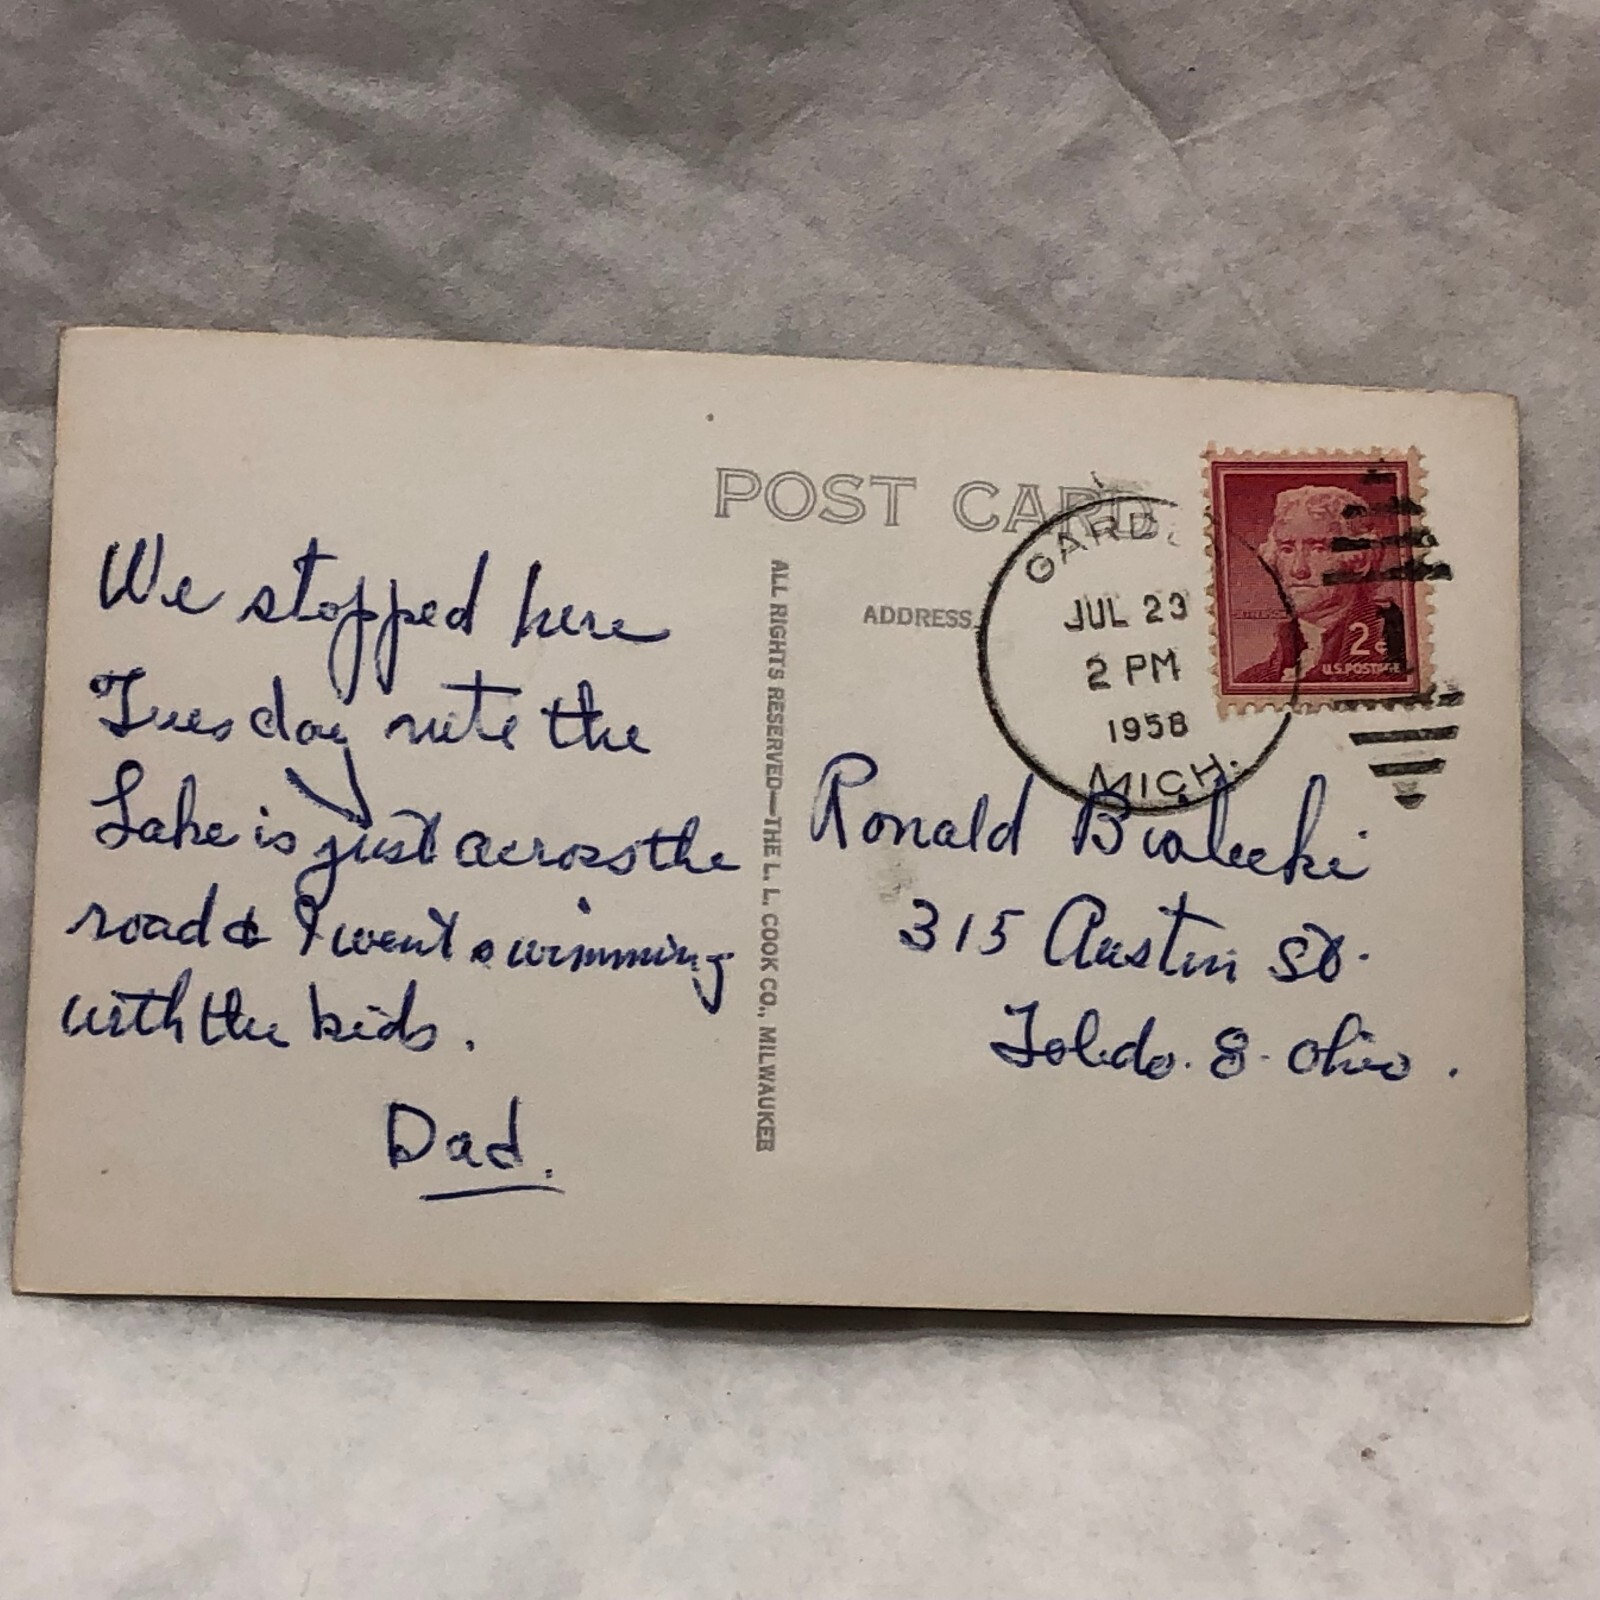 POST CARD
We stopped here
Tuesday nite the
Lake is just across the
road & I went swimming
with the kids.
Dad.
ALL RIGHTS RESERVED—THE L. L. COOK CO., MILWAUKEE
ADDRESS
GARD
JUL 23
2 PM
1958
MICH.
2¢
U.S. POSTAGE
Ronald Bialecki
315 Austin St.
Toledo. 8. Ohio.